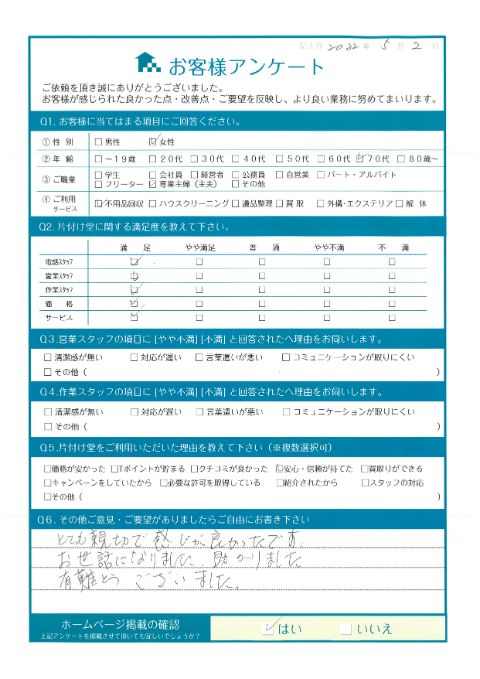 記入日 2022 年 5 月 2 日
お客様アンケート
ご依頼を頂き誠にありがとうございました。
お客様が感じられた良かった点・改善点・ご要望を反映し、より良い業務に努めてまいります。
Q1. お客様に当てはまる項目にご回答ください。
① 性 別 □ 男性 ☑ 女性
② 年 齢 □ ～19歳 □ 20代 □ 30代 □ 40代 □ 50代 □ 60代 ☑ 70代 □ 80歳～
③ ご職業 □ 学生 □ 会社員 □ 経営者 □ 公務員 □ 自営業 □ パート・アルバイト
□ フリーター ☑ 専業主婦（主夫） □ その他
④ ご利用サービス ☑ 不用品回収 □ ハウスクリーニング □ 遺品整理 □ 買 取 □ 外構・エクステリア □ 解 体
Q2. 片付け堂に関する満足度を教えて下さい。
満 足 やや満足 普 通 やや不満 不 満
電話スタッフ ☑ □ □ □ □
営業スタッフ ☑ □ □ □ □
作業スタッフ ☑ □ □ □ □
価 格 ☑ □ □ □ □
サービス ☑ □ □ □ □
Q3.営業スタッフの項目に [やや不満] [不満] と回答された方へ理由をお伺いします。
□ 清潔感が無い □ 対応が遅い □ 言葉遣いが悪い □ コミュニケーションが取りにくい
□ その他（ ）
Q4.作業スタッフの項目に [やや不満] [不満] と回答された方へ理由をお伺いします。
□ 清潔感が無い □ 対応が遅い □ 言葉遣いが悪い □ コミュニケーションが取りにくい
□ その他（ ）
Q5.片付け堂をご利用いただいた理由を教えて下さい（※複数選択可）
□価格が安かった □Tポイントが貯まる □クチコミが良かった ☑安心・信頼が持てた □買取りができる
□キャンペーンをしていたから □必要な許可を取得している □紹介されたから □スタッフの対応
□その他（ ）
Q6. その他ご意見・ご要望がありましたらご自由にお書き下さい
とても親切で感じが良かったです。
お世話になりました。助かりました
有難とうございました。
ホームページ掲載の確認 ☑ はい □ いいえ
上記アンケートを掲載させて頂いても宜しいでしょうか？